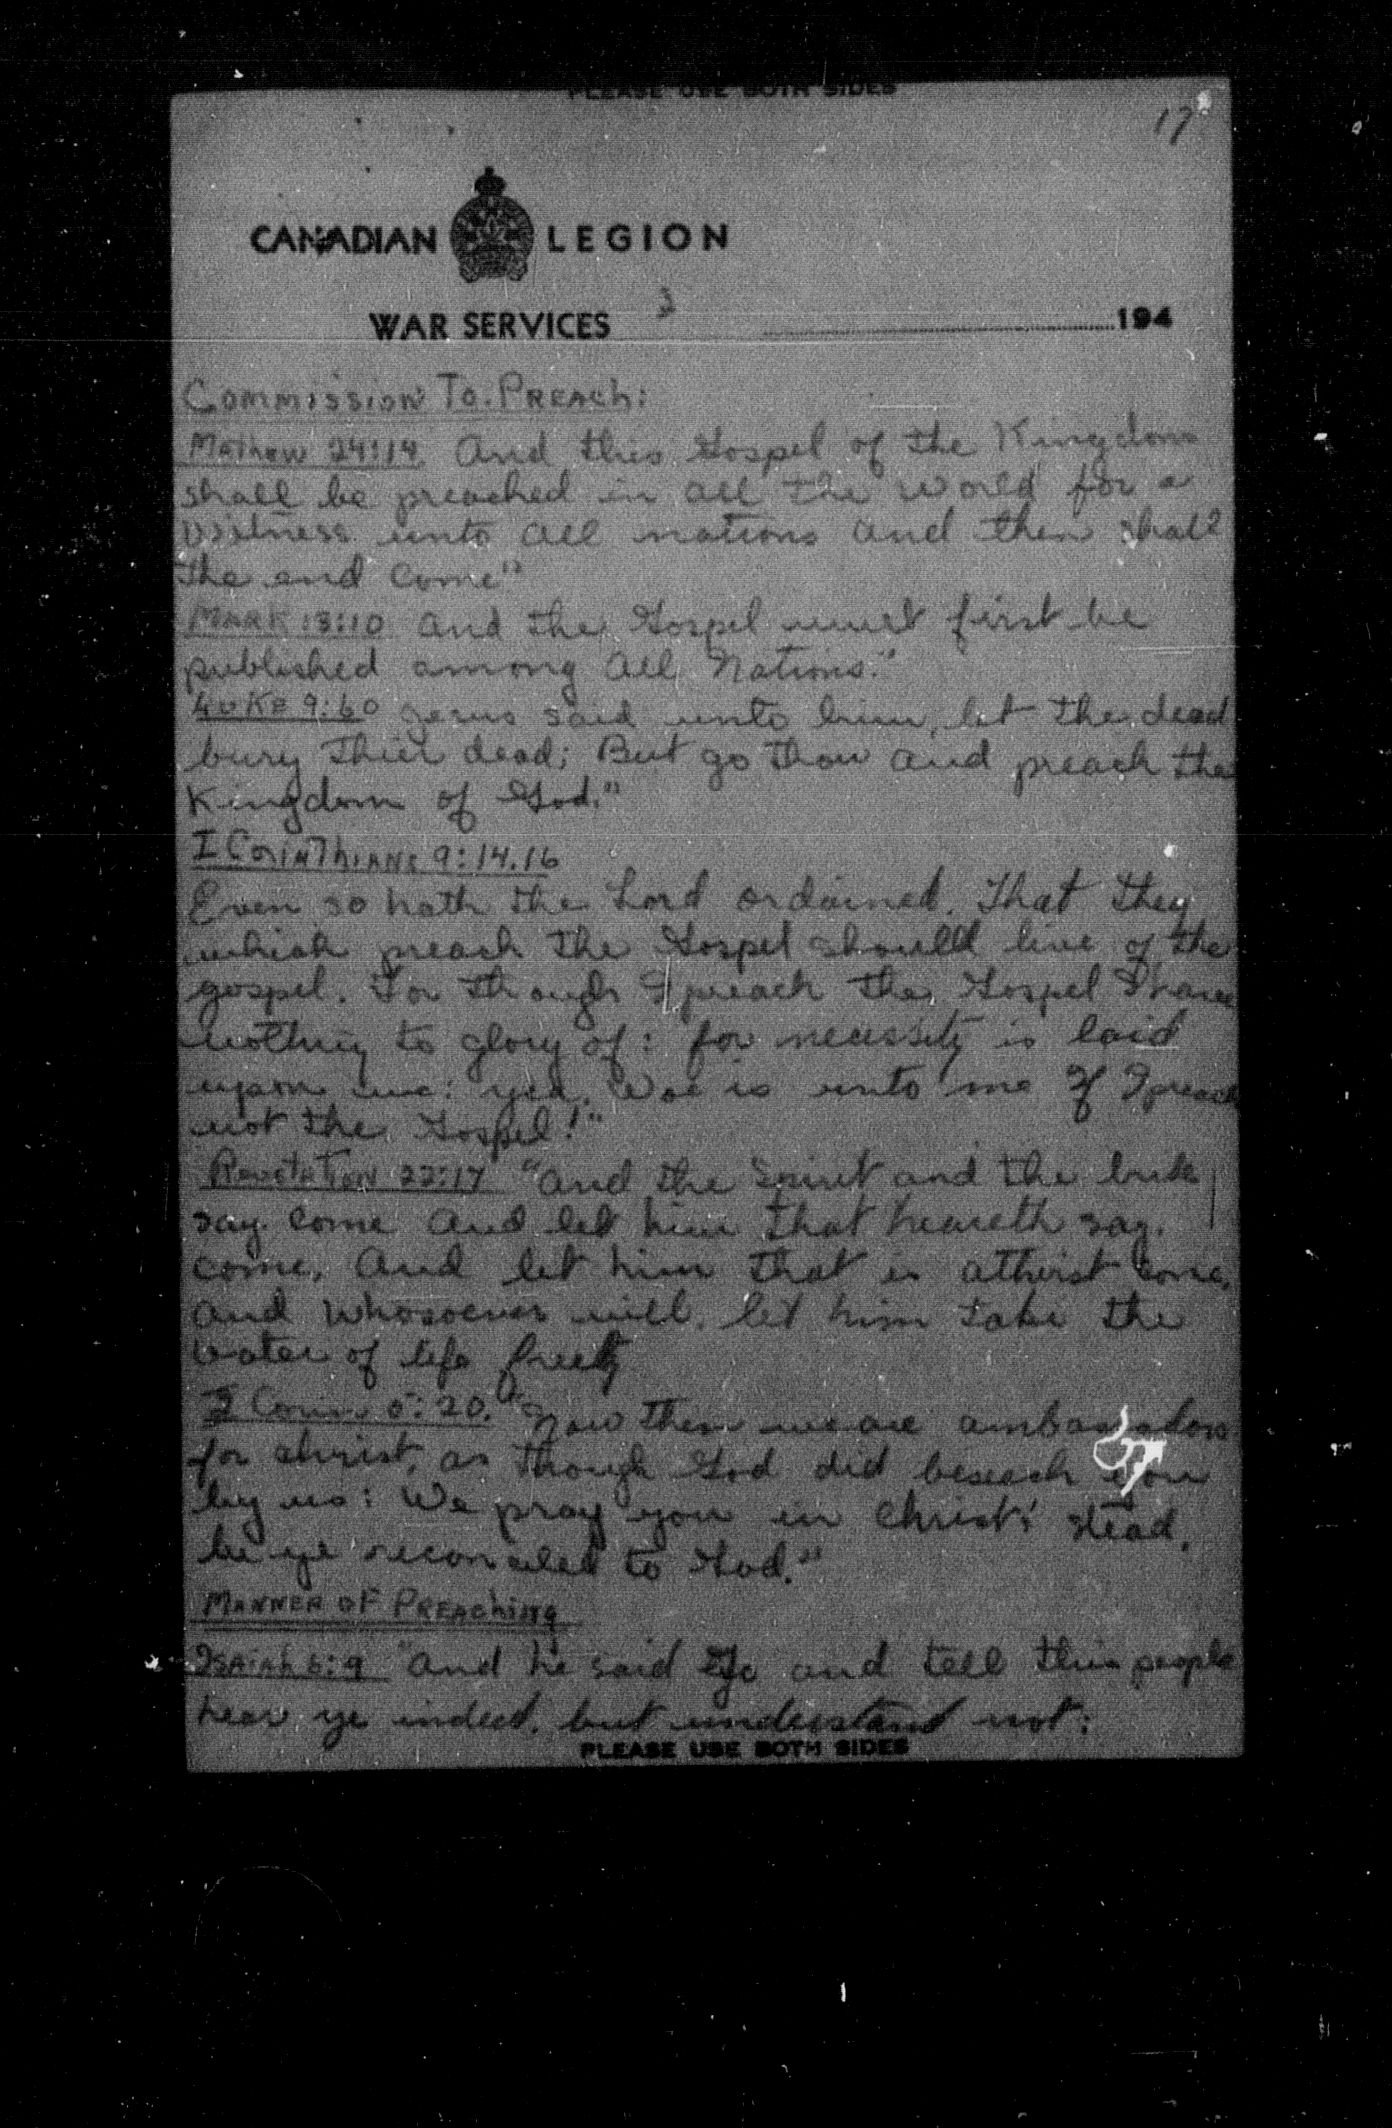 PLEASE USE BOTH SIDES
17
CANADIAN LEGION
WAR SERVICES
3
194
COMMISSION TO. PREACH:
Mathew 24:14 And this Gospel of the Kingdom
shall be preached in all the world for a
witness unto all nations and then shall
the end come"
MARK 13:10 and the Gospel must first be
published among all Nations."
LUKE 9:60 Jesus said unto him, let the dead
bury thier dead; But go thou and preach the
Kingdom of God."
I CORINTHIANS 9:14.16
Even so hath the Lord ordained. That they
which preach the Gospel should live of the
gospel. For though I preach the Gospel I have
nothing to glory of: for necessity is laid
upon me: yea, Woe is unto me If I preach
not the Gospel!"
Revelation 22:17 "And the Spirit and the bride
say come and let him that heareth say.
come. And let him that is athirst come.
and whosoever will. let him take the
water of life freely
Corin 5:20. "Now then we are ambassadors
for christ, as though God did beseech you
by us: We pray you in Christ's stead.
be ye reconciled to God."
MANNER OF PREACHING
ISAIAH 6:9 "And he said Go and tell this people
hear ye indeed. but understand not:
PLEASE USE BOTH SIDES